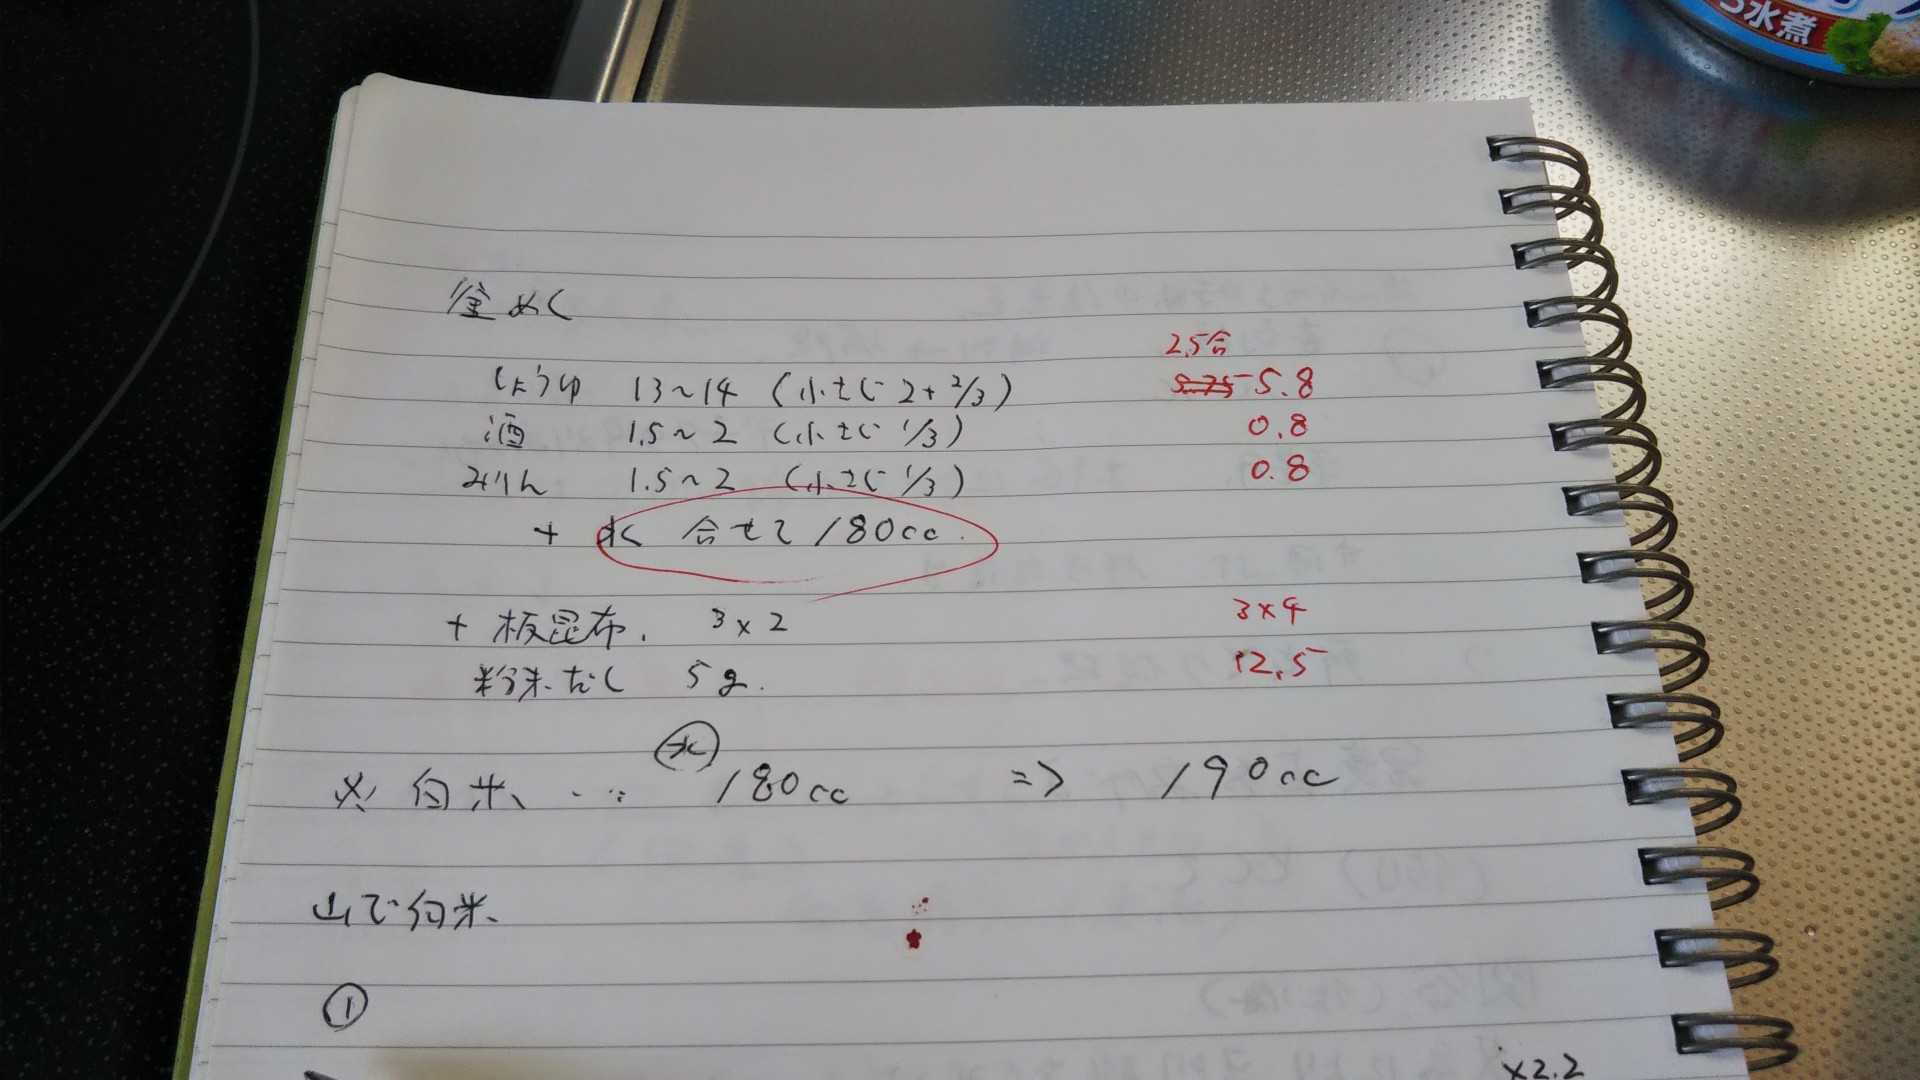 水煮
釜めし
2.5合
しょうゆ 13~14 (小さじ 2+2/3) 5.8
酒 1.5~2 (小さじ 1/3) 0.8
みりん 1.5~2 (小さじ 1/3) 0.8
+ 水 合せて 180cc
+ 板昆布. 3×2 3×4
粉末だし 5g. 12.5
水
白米 180cc => 190cc
山で白米
①
×2.2